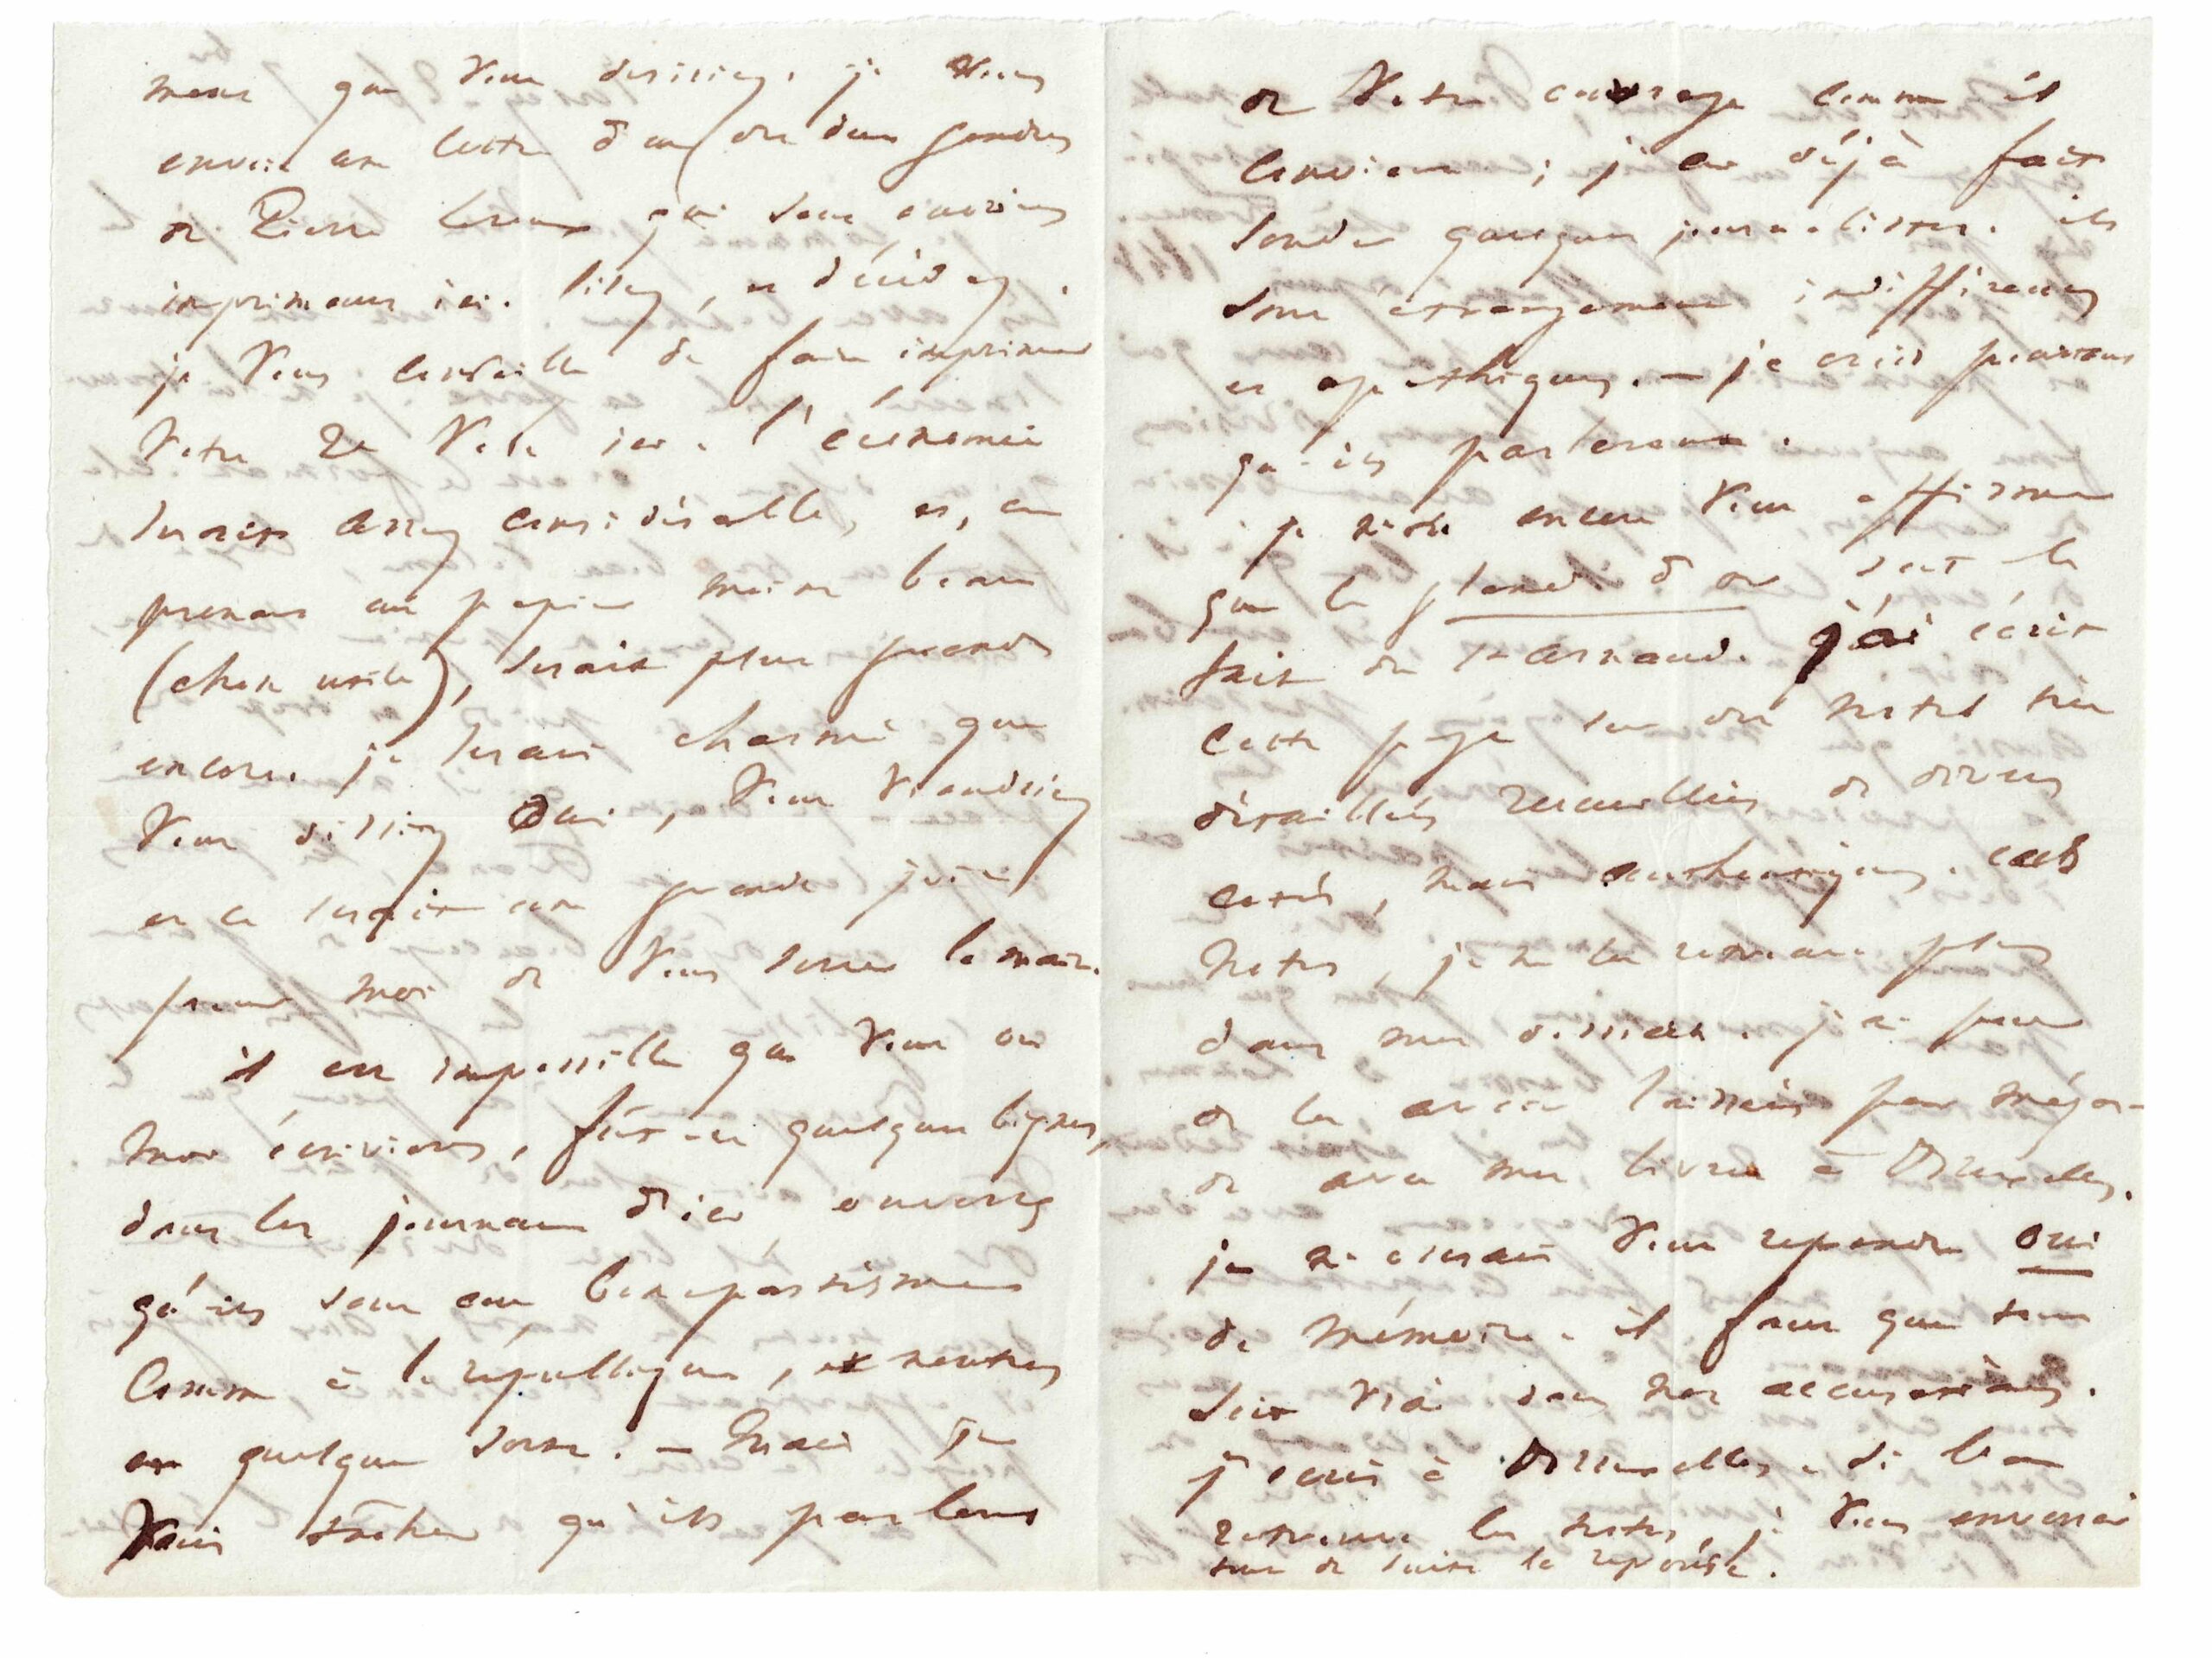 mens que vous desiriez. je vous
envoie une lettre d'un des deux gendres
de Pierre Leroux qui sont ouvriers
imprimeurs ici. lisez, et décidez.
je vous conseille de faire imprimer
votre 2e vol. ici. l'économie
serait assez considérable, et, en
prenant un papier moins beau
(chose utile), serait plus grande
encore. je serais charmé que
vous disiez oui, vous viendriez
et ce serait une grande joie
pour moi de vous serrer la main.
il est impossible que vous ou
moi écrivions, fût-ce quelques lignes,
dans les journaux d'ici ouverts
qu'ils sont au bonapartisme
comme à la république, et neutres
en quelque sorte. — Mais je
vais tâcher qu'ils parlent
de votre ouvrage comme il
convient ; j'ai déjà fait
sonder quelques journalistes. ils
sont étrangement indifférents
et apathiques. — je crois pourtant
qu'ils parleront.
je n'ose encore vous affirmer
que le gland d'or soit le
fait de St Arnaud. j'ai écrit
cette page sur des notes très
détaillées recueillies de divers
côtés, mais authentiques. ces
notes, je ne les retrouve plus
dans mes dossiers. j'ai peur
de les avoir laissées par mégar-
de avec mes livres à Bruxelles.
je n'oserais vous répondre oui
de mémoire. il faut que tout
soit vrai dans nos accusations.
j'écris à Bruxelles. si l'on
retrouve les notes, je vous enverrai
tout de suite la réponse.